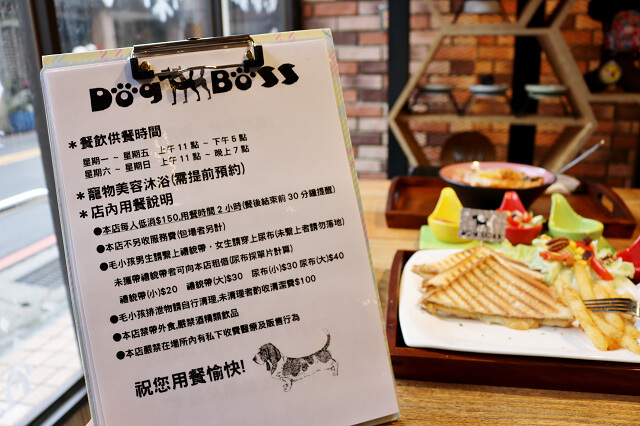 Dog Boss
*餐飲供餐時間
星期一 ~ 星期五 上午11點 ~ 下午5點
星期六 ~ 星期日 上午11點 ~ 晚上7點
*寵物美容沐浴(需提前預約)
*店內用餐說明
●本店每人低消$150,用餐時間2小時(餐後結束前30分鐘提醒)
●本店不另收服務費(包場者另計)
●毛小孩男生請繫上禮貌帶、女生請穿上尿布(未繫上者請勿落地)
未攜帶禮貌帶者可向本店租借(尿布採單片計算)
禮貌帶(小)$20 禮貌帶(大)$30 尿布(小)$30 尿布(大)$40
●毛小孩排泄物請自行清理,未清理者酌收清潔費$100
●本店禁帶外食,嚴禁酒精類飲品
●本店嚴禁在場所內有私下收費醫療及販售行為
祝您用餐愉快!